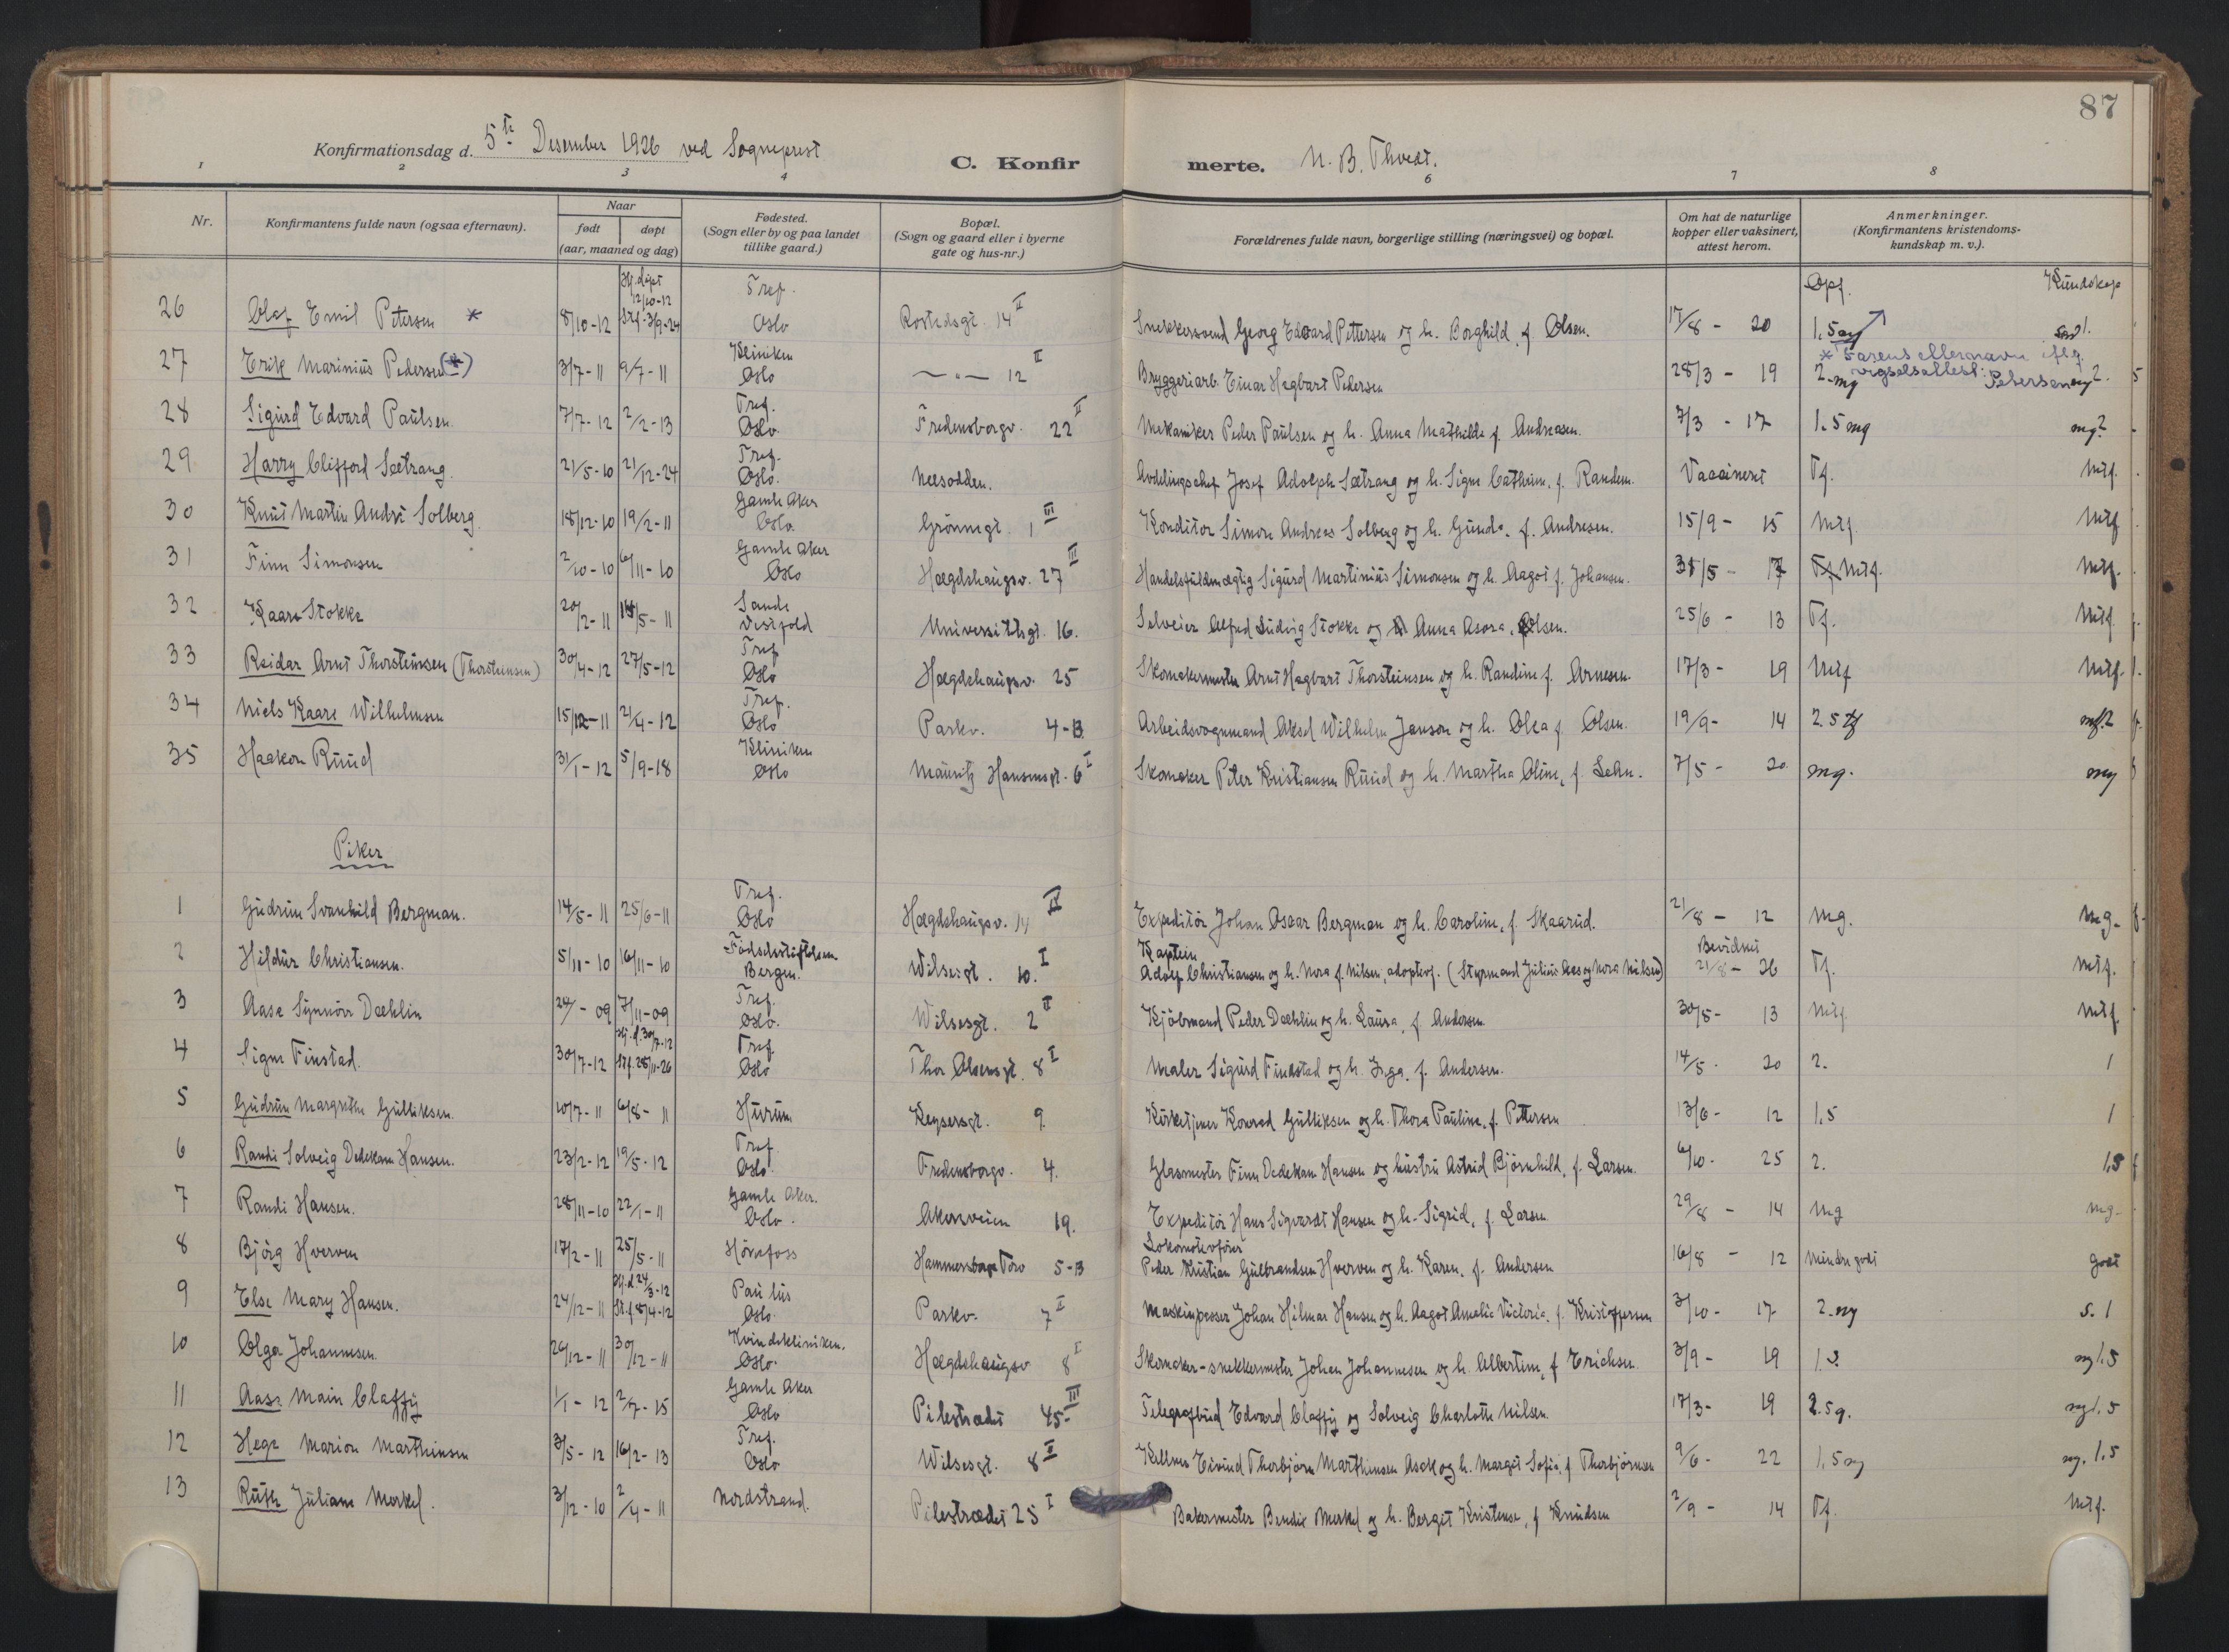 87
Konfirmationsdag d. 5te Desember 1926 ved Sogneprest
C. Konfirmerte. N. B. Thvedt.
1 2 3 4 6 7 8
Nr.
Konfirmantens fulde navn (ogsaa efternavn).
Naar
født døpt
(aar, maaned og dag)
Fødested.
(Sogn eller by og paa landet
tillike gaard.)
Bopæl.
(Sogn og gaard eller i byerne
gate og hus-nr.)
Forældrenes fulde navn, borgerlige stilling (næringsvei) og bopæl.
Om hat de naturlige
kopper eller vaksinert,
attest herom.
Anmerkninger.
(Konfirmantens kristendoms-
kundskap m. v.).
Opf. Kundskap
26 Olaf Emil Petersen * 8/10-12 Hj. døpt 12/10-12 St.f. 3/9-24 Tref. Oslo Rostedsgt. 14 II Snekkersvend Georg Edvard Pettersen og h. Borghild, f. Olsen. 17/8 - 20 1.5
* Farens etternavn iflg.
vigselsattest: Petersen
27 Erik Marinius Pedersen (*) 3/7-11 9/7-11 Kliniken Oslo — " — 12 II Bryggeriarb. Einar Hagbart Pedersen 28/3 - 19 2-mg mg2.
28 Sigurd Edvard Paulsen. 7/7-12 2/2-13 Tref. Oslo. Fredensborgv. 22 II Mekaniker Peder Paulsen og h. Anna Mathilde f. Andreasen. 7/3 - 17 1.5 mg mg2
29 Harry Clifford Sætrang. 21/5-10 21/12-24 Tref. Oslo. Nesodden. Avdelingschef Josef Adolph Sætrang og h. Signe Cathrine, f. Randem. Vaccinert Tf. Mtf.
30 Knut Martin André Solberg. 18/12-10 19/2-11 Gamle Aker Oslo. Grønnegt. 1 III Konditor Simon Andreas Solberg og h. Gunda, f. Andresen. 15/9 - 15 Mtf. Mtf
31 Finn Simonsen 2/10-10 6/11-10 Gamle Aker Oslo Hægdehaugsv. 27 III Handelsfuldmægtig Sigurd Martinius Simonsen og h. Aagot f. Johansen. 31/5 - 17 Tf. Mtf. Mtf.
32 Kaare Stokke 20/2-11 14/5-11 Sande Vestfold Universitetsgt. 16. Selveier Alfred Ludvig Stokke og Anna Asora, Olsen. 25/6 - 13 Tf. Mtf.
33 Reidar Arnt Thorsteinsen (Thorsteinsen) 30/4-12 27/5-12 Tref Oslo Hægdehaugsv. 25 Skomakermester Arnt Hagbart Thorsteinsen og h. Randine f. Arnesen. 17/3 - 19 Mtf Mtf.
34 Niels Kaare Wilhelmsen 15/12-11 21/4-12 Tref. Oslo Parkv. 4-B Arbeidsvognmand Aksel Wilhelm Janson og h. Olea f. Olsen. 19/9 - 14 2.5 tf
35 Haakon Ruud 31/1-12 5/9-18 Kliniken Oslo Mauritz Hansensgt. 6 I Skomaker Peter Kristiansen Ruud og h. Martha Oline, f. Lehn. 7/5 - 20 mg. mg
Piker
1 Gudrun Svanhild Bergman. 14/5-11 25/6-11 Tref. Oslo Hægdehaugsv. Expeditør Johan Oscar Bergman og h. Caroline, f. Skaarud. 21/8 - 12 Mg. Mg.
2 Hildur Christiansen. 5/11-10 16/11-10 Fødselsstiftelsen Bergen. Wilsesgt. 10. I Kaptein
Adolf Christiansen og h. Nora f. Nilsen, adoptivf. (Styrmand Julius Aas og Nora Nilsen) Bevidnet 21/8 - 26 Tf. Mtf.
3 Aase Synnøve Dæhlin 24/ - 09 7/11-09 Tref. Oslo. Wilsesgt. 2 II Kjøbmand Peder Dæhlin og h. Laura, f. Andersen. 30/5 - 13 Mtf. Mtf.
4 Signe Finstad. 30/7-12 Hj. d. 30/7-12 St.f. 28/11-26 Tref. Oslo Thor Olsensgt. 8 I Maler Sigurd Finstad og h. Inga, f. Andersen. 14/5 - 20 2. 1
5 Gudrun Margrethe Gulliksen. 10/7-11 6/8-11 Hurum Keysersgt. 9. Kirketjener Konrad Gulliksen og h. Thora Pauline, f. Pettersen 13/6 - 12 1.5 1
6 Randi Solveig Dedekam Hansen. 23/2-12 19/5-12 Tref. Oslo. Fredensborgv. 4. Glasmester Finn Dedekam Hansen og hustru Astrid Bjørnhild, f. Larsen. 6/10 - 25 2. 1,5
7 Randi Hansen. 28/11-10 22/1-11 Gamle Aker. Oslo. Akersveien 19. Expeditør Hans Sigvardt Hansen og h. Sigrid, f. Larsen 29/8 - 14 Mg mg.
8 Bjørg Hverven 17/2-11 25/5-11 Hønefoss Hammersborg Torv 5-B Lokomotivfører
Peder Kristian Gulbrandsen Hverven og h. Karen, f. Andersen 16/8 - 12 Mindre godt Godt
9 Else Mary Hansen. 24/12-11 Hj.d. 24/3-12 St.f. 8/4-12 Paulus Oslo. Parkv. 7 I Maskinpasser Johan Hilmar Hansen og h. Aagot Amalie Victoria, f. Kristoffersen 3/10 - 17 2-mg s. 1
10 Olga Johannesen. 26/12-11 30/12-11 Kvindekliniken. Oslo. Hægdehaugsv 8 I Skomaker-snekkermester Johan Johannesen og h. Albertine, f. Erichsen. 3/9 - 19
11 Aase Main Claffy 1/1-12 2/7-15 Gamle Aker Oslo Pilestrædet 45 III Telegrafbud Edvard Claffy og Solveig Charlotte Nilsen. 17/3 - 19 2.5 g. mg 1.5
12 Hege Marion Marthinsen 3/5-12 16/2-13 Tref. Oslo Wilsesgt. 8 II Kellner Eivind Thorbjørn Marthinsen Asek og h. Margit Sofie, f. Thorbjørnsen 9/6 - 22 1.5 mg mg. 1.5
13 Ruth Juliane Merkel. 3/12-10 2/4-11 Nordstrand. Pilestrædet 25 I Bakermester Bendix Merkel og h. Bergit Kristense, f. Knudsen 2/9 - 14 Tf. Mtf.